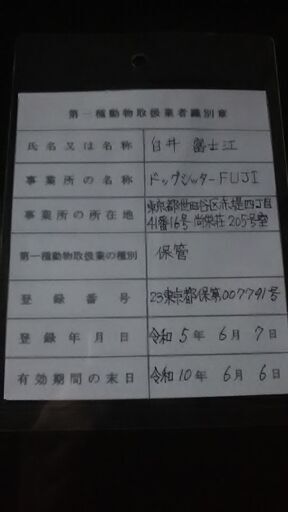 第一種動物取扱業者識別章
氏名又は名称 白井 富士江
事業所の名称 ドッグシッターFUJI
事業所の所在地 東京都世田谷区赤堤四丁目
41番16号 尚栄荘 205号室
第一種動物取扱業の種別 保管
登録番号 23東京都保第007791号
登録年月日 令和5年6月7日
有効期間の末日 令和10年6月6日